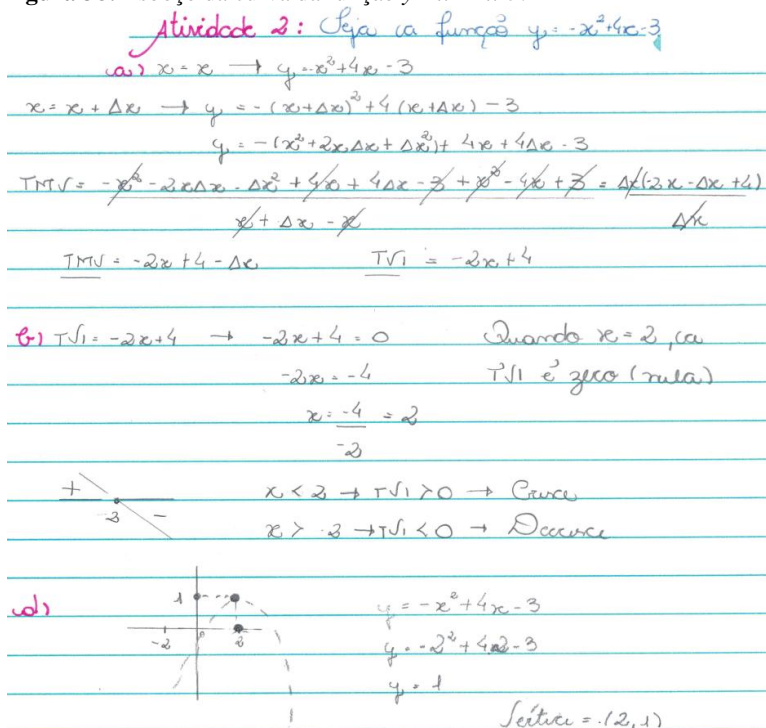 Atividade 2: Seja a função y = -x²+4x-3
a) x = x → y = -x²+4x-3
x = x + Δx → y = -(x+Δx)²+4(x+Δx)-3
y = -(x²+2xΔx+Δx²)+4x+4Δx-3
TMV = -x²-2xΔx-Δx²+4x+4Δx-3+x²-4x+3 = Δx(-2x-Δx+4)
x+Δx-x Δx
TMV = -2x+4-Δx TVI = -2x+4
b) TVI = -2x+4 → -2x+4 = 0 Quando x = 2, a
-2x = -4 TVI é zero (nula)
x = -4 = 2
-2
+ x < 2 → TVI > 0 → Cresce
2 - x > 2 → TVI < 0 → Decresce
d) 1 y = -x²+4x-3
-2 0 2 y = -2²+4.2-3
y = 1
Vértice = (2,1)